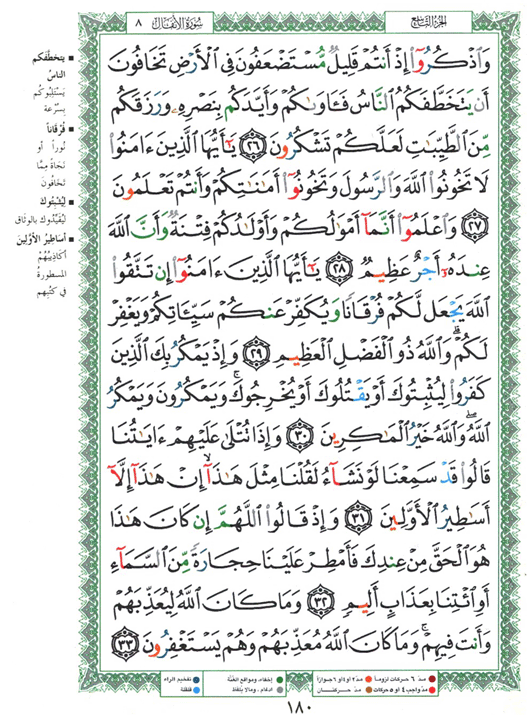 الجزء التاسع
سورة الأنفال ٨
وَاذْكُرُوا إِذْ أَنتُمْ قَلِيلٌ مُّسْتَضْعَفُونَ فِي الْأَرْضِ تَخَافُونَ
أَن يَتَخَطَّفَكُمُ النَّاسُ فَـَٔاوَىٰكُمْ وَأَيَّدَكُم بِنَصْرِهِۦ وَرَزَقَكُم
مِّنَ الطَّيِّبَٰتِ لَعَلَّكُمْ تَشْكُرُونَ ٢٦ يَٰٓأَيُّهَا الَّذِينَ ءَامَنُوا
لَا تَخُونُوا اللَّهَ وَالرَّسُولَ وَتَخُونُوٓا أَمَٰنَٰتِكُمْ وَأَنتُمْ تَعْلَمُونَ
٢٧ وَاعْلَمُوٓا أَنَّمَآ أَمْوَٰلُكُمْ وَأَوْلَٰدُكُمْ فِتْنَةٌ وَأَنَّ اللَّهَ
عِندَهُۥٓ أَجْرٌ عَظِيمٌ ٢٨ يَٰٓأَيُّهَا الَّذِينَ ءَامَنُوٓا إِن تَتَّقُوا
اللَّهَ يَجْعَل لَّكُمْ فُرْقَانًا وَيُكَفِّرْ عَنكُمْ سَيِّـَٔاتِكُمْ وَيَغْفِرْ
لَكُمْ ۗ وَاللَّهُ ذُو الْفَضْلِ الْعَظِيمِ ٢٩ وَإِذْ يَمْكُرُ بِكَ الَّذِينَ
كَفَرُوا لِيُثْبِتُوكَ أَوْ يَقْتُلُوكَ أَوْ يُخْرِجُوكَ ۚ وَيَمْكُرُونَ وَيَمْكُرُ
اللَّهُ ۖ وَاللَّهُ خَيْرُ الْمَٰكِرِينَ ٣٠ وَإِذَا تُتْلَىٰ عَلَيْهِمْ ءَايَٰتُنَا
قَالُوا قَدْ سَمِعْنَا لَوْ نَشَآءُ لَقُلْنَا مِثْلَ هَٰذَآ ۙ إِنْ هَٰذَآ إِلَّآ
أَسَٰطِيرُ الْأَوَّلِينَ ٣١ وَإِذْ قَالُوا اللَّهُمَّ إِن كَانَ هَٰذَا
هُوَ الْحَقَّ مِنْ عِندِكَ فَأَمْطِرْ عَلَيْنَا حِجَارَةً مِّنَ السَّمَآءِ
أَوِ ائْتِنَا بِعَذَابٍ أَلِيمٍ ٣٢ وَمَا كَانَ اللَّهُ لِيُعَذِّبَهُمْ
وَأَنتَ فِيهِمْ ۚ وَمَا كَانَ اللَّهُ مُعَذِّبَهُمْ وَهُمْ يَسْتَغْفِرُونَ ٣٣
■ يتخطّفكم
الناسُ
يَسْتَلِبُوكُم
بِسُرْعة
■ فُرْقاناً
نُوراً أو
نَجَاةً ممّا
تخافُونَ
■ لِيُثْبِتُوكَ
لِيُقَيِّدُوكَ بالوثاقِ
■ أساطيرُ الأوّلينَ
أكاذيبُهُمْ
المسطورةُ
في كتُبِهم
مدّ ٦ حركات لزوماً
مدّ ٢ او ٤ او ٦ جوازاً
إخفاء، ومواقع الغُنَّة
تفخيم الراء
مدّ واجب ٤ او ٥ حركات
مدّ حركتان
ادغام، ومالا يُلفظ
قلقلة
١٨٠